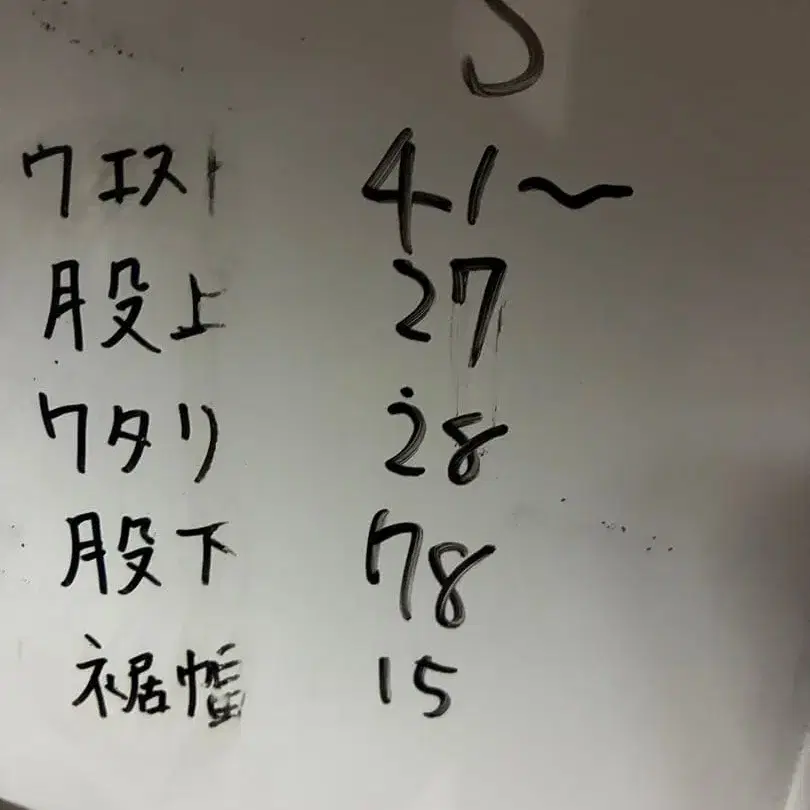 S
ウエスト 41〜
股上 27
ワタリ 28
股下 78
裾幅 15